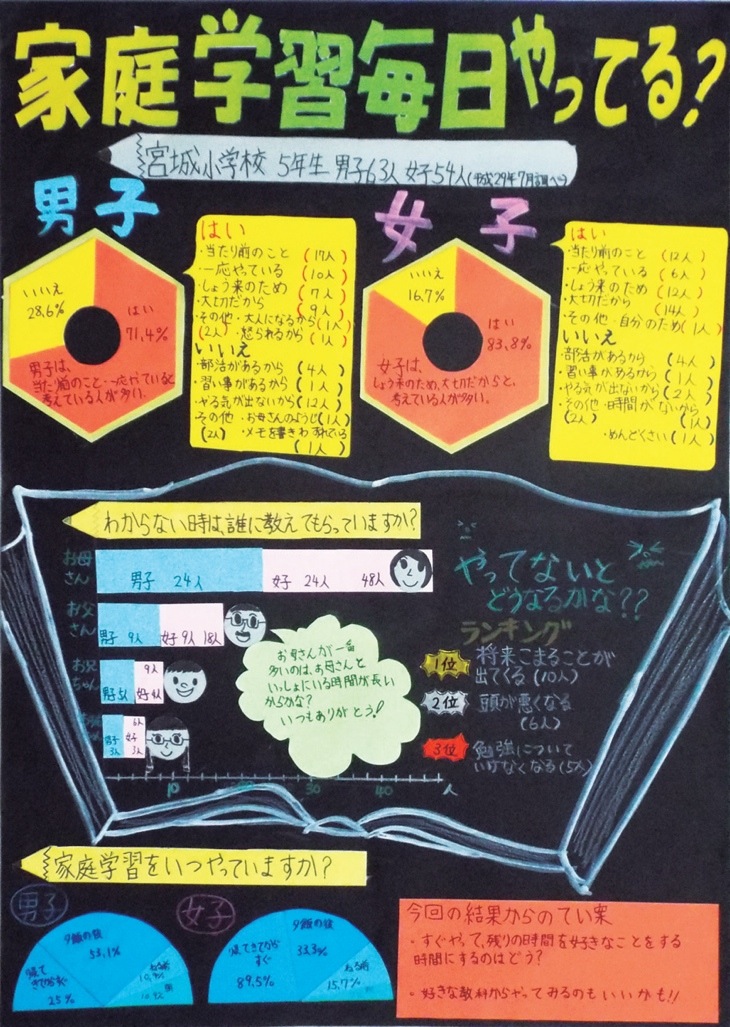 家庭学習毎日やってる?
宮城小学校 5年生 男子63人 女子54人(平成29年7月調べ)
男子
いいえ
28.6%
はい
71.4%
男子は、
当たり前のこと・一応やっていると
考えている人が多い。
はい
・当たり前のこと (17人)
・一応やっている (10人)
・しょう来のため (7人)
・大切だから (9人)
・その他・大人になるから(1人)
(2人)・怒られるから(1人)
いいえ
・部活があるから (4人)
・習い事があるから (1人)
・やる気が出ないから(12人)
その他・お母さんのようじ(1人)
(2人)・メモを書きわすれている
(1人)
女子
いいえ
16.7%
はい
83.8%
女子は、
しょう来のため、大切だからと、
考えている人が多い。
はい
・当たり前のこと (12人)
・一応やっている (6人)
・しょう来のため (12人)
・大切だから (14人)
・その他・自分のため(1人)
いいえ
・部活があるから (4人)
・習い事があるから (1人)
・やる気が出ないから(2人)
・その他・時間がないから
(2人) (1人)
・めんどくさい(1人)
わからない時は、誰に教えてもらっていますか?
お母
さん
男子 24人 女子 24人 48人
お父
さん
男子 9人 女子 9人 18人
お兄
ちゃん
9人
男子5人 女子4人
6人
男子 女子
3人 3人
10 20 30 40 人
お母さんが一番
多いのは、お母さんと
いっしょにいる時間が長い
からかな?
いつもありがとう!
やってないと
どうなるかな??
ランキング
1位 将来こまることが
出てくる(10人)
2位 頭が悪くなる
(6人)
3位 勉強について
いけなくなる(5人)
家庭学習をいつやっていますか?
男子
帰って
きてからすぐ
25%
夕飯の後
53.1%
女子
帰ってきてから
すぐ
89.5%
夕飯の後
33.3%
ねる前
15.7%
今回の結果からのてい案
・すぐやって、残りの時間を好きなことをする
時間にするのはどう?
・好きな教科からやってみるのもいいかも!!